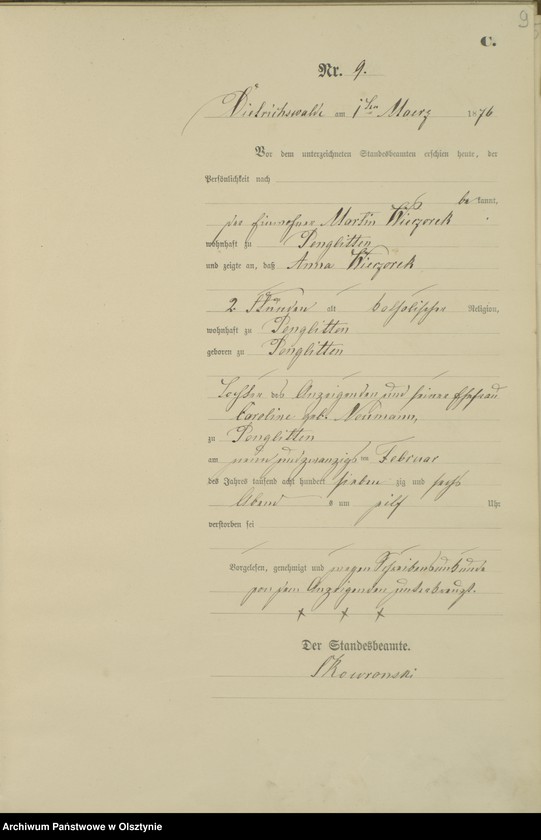 9
C.
Nr. 9.
Dietrichswalde am 1ten Maerz 1876
Vor dem unterzeichneten Standesbeamten erschien heute, der
Persönlichkeit nach
be kannt,
der Einwohner Martin Wieczorek
wohnhaft zu Penglitten
und zeigte an, daß Anna Wieczorek
2 Stunden alt katholischer Religion,
wohnhaft zu Penglitten
geboren zu Penglitten
Tochter des Anzeigenden und seiner Ehefrau
Caroline geb. Neumann,
zu Penglitten
am neun und zwanzigsten Februar
des Jahres tausend acht hundert sieben zig und sechs
Abend s um zwölf Uhr
verstorben sei
Vorgelesen, genehmigt und wegen Schreibensunkunde
von dem Anzeigenden unterkreuzt.
+ + +
Der Standesbeamte.
Skowronski
Archiwum Państwowe w Olsztynie